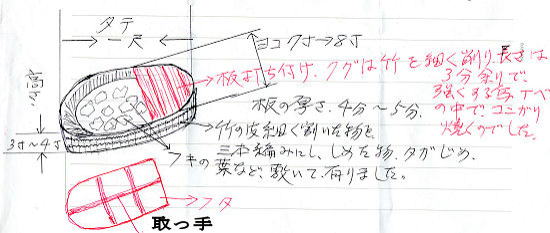 タテ
一尺
ヨコ7寸→8寸
高さ
3寸〜4寸
板打ち付け、クグは竹を細く削り、長さは
3分余りで、
強くする為ナベ
の中で、コンガリ
焼くのでした。
板の厚さ、4分〜5分、
竹の皮細く割いた物を
三本編みにし、しめた物、タガじめ、
フキの葉など、敷いて有りました。
フタ
取っ手